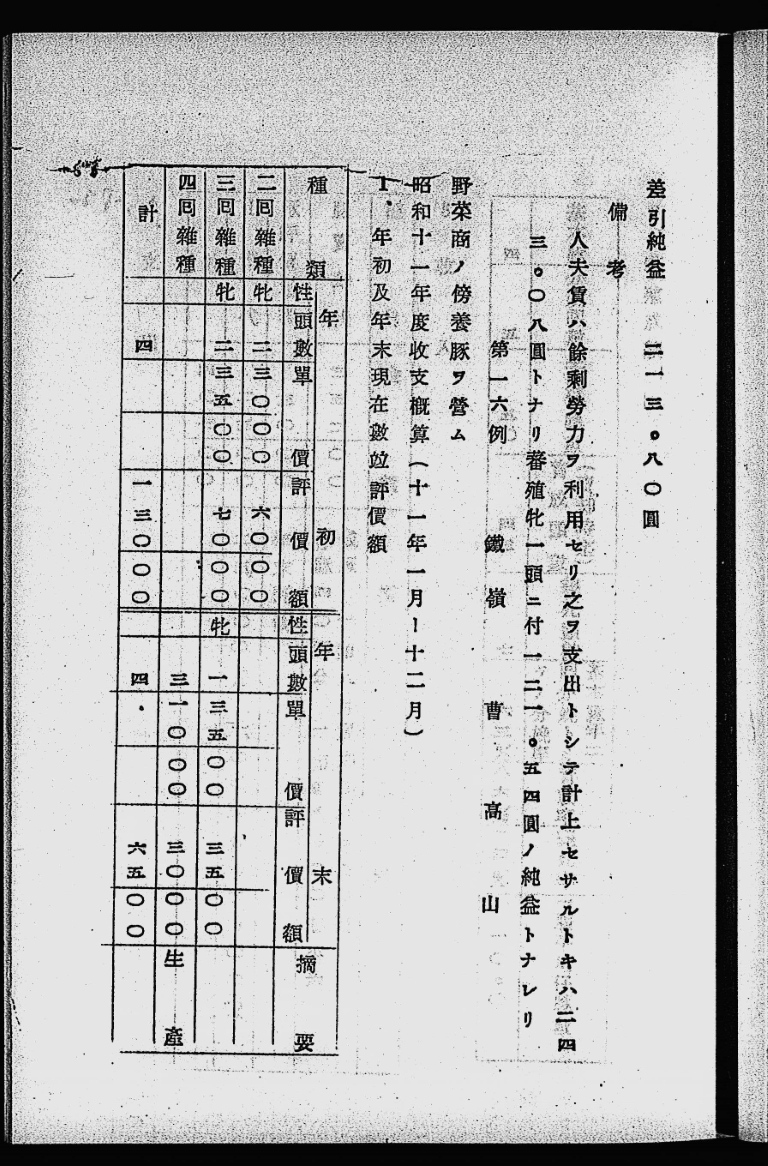 差引純益 二一三。八〇圓
備考
人夫賃ハ餘剩勞力ヲ利用セリ之ヲ支出トシテ計上セサルトキハ二四
三。〇八圓トナリ蕃殖牝一頭ニ付一二一。五四圓ノ純益トナレリ
第一六例 鐵嶺 曹高山
野菜商ノ傍養豚ヲ營ム
昭和十一年度收支概算（十一年一月ー十二月）
1、年初及年末現在數竝評價額
種類 年初 年末 摘要
性 頭數 單價 評價額 性 頭數 單價 評價額
二囘雜種 牝 二 三〇〇〇 六〇〇〇
三囘雜種 牝 二 三五〇〇 七〇〇〇 牝 一 三五〇〇 三五〇〇
四囘雜種 三 一〇〇〇 三〇〇〇 生產
計 四 一三〇〇〇 四 六五〇〇